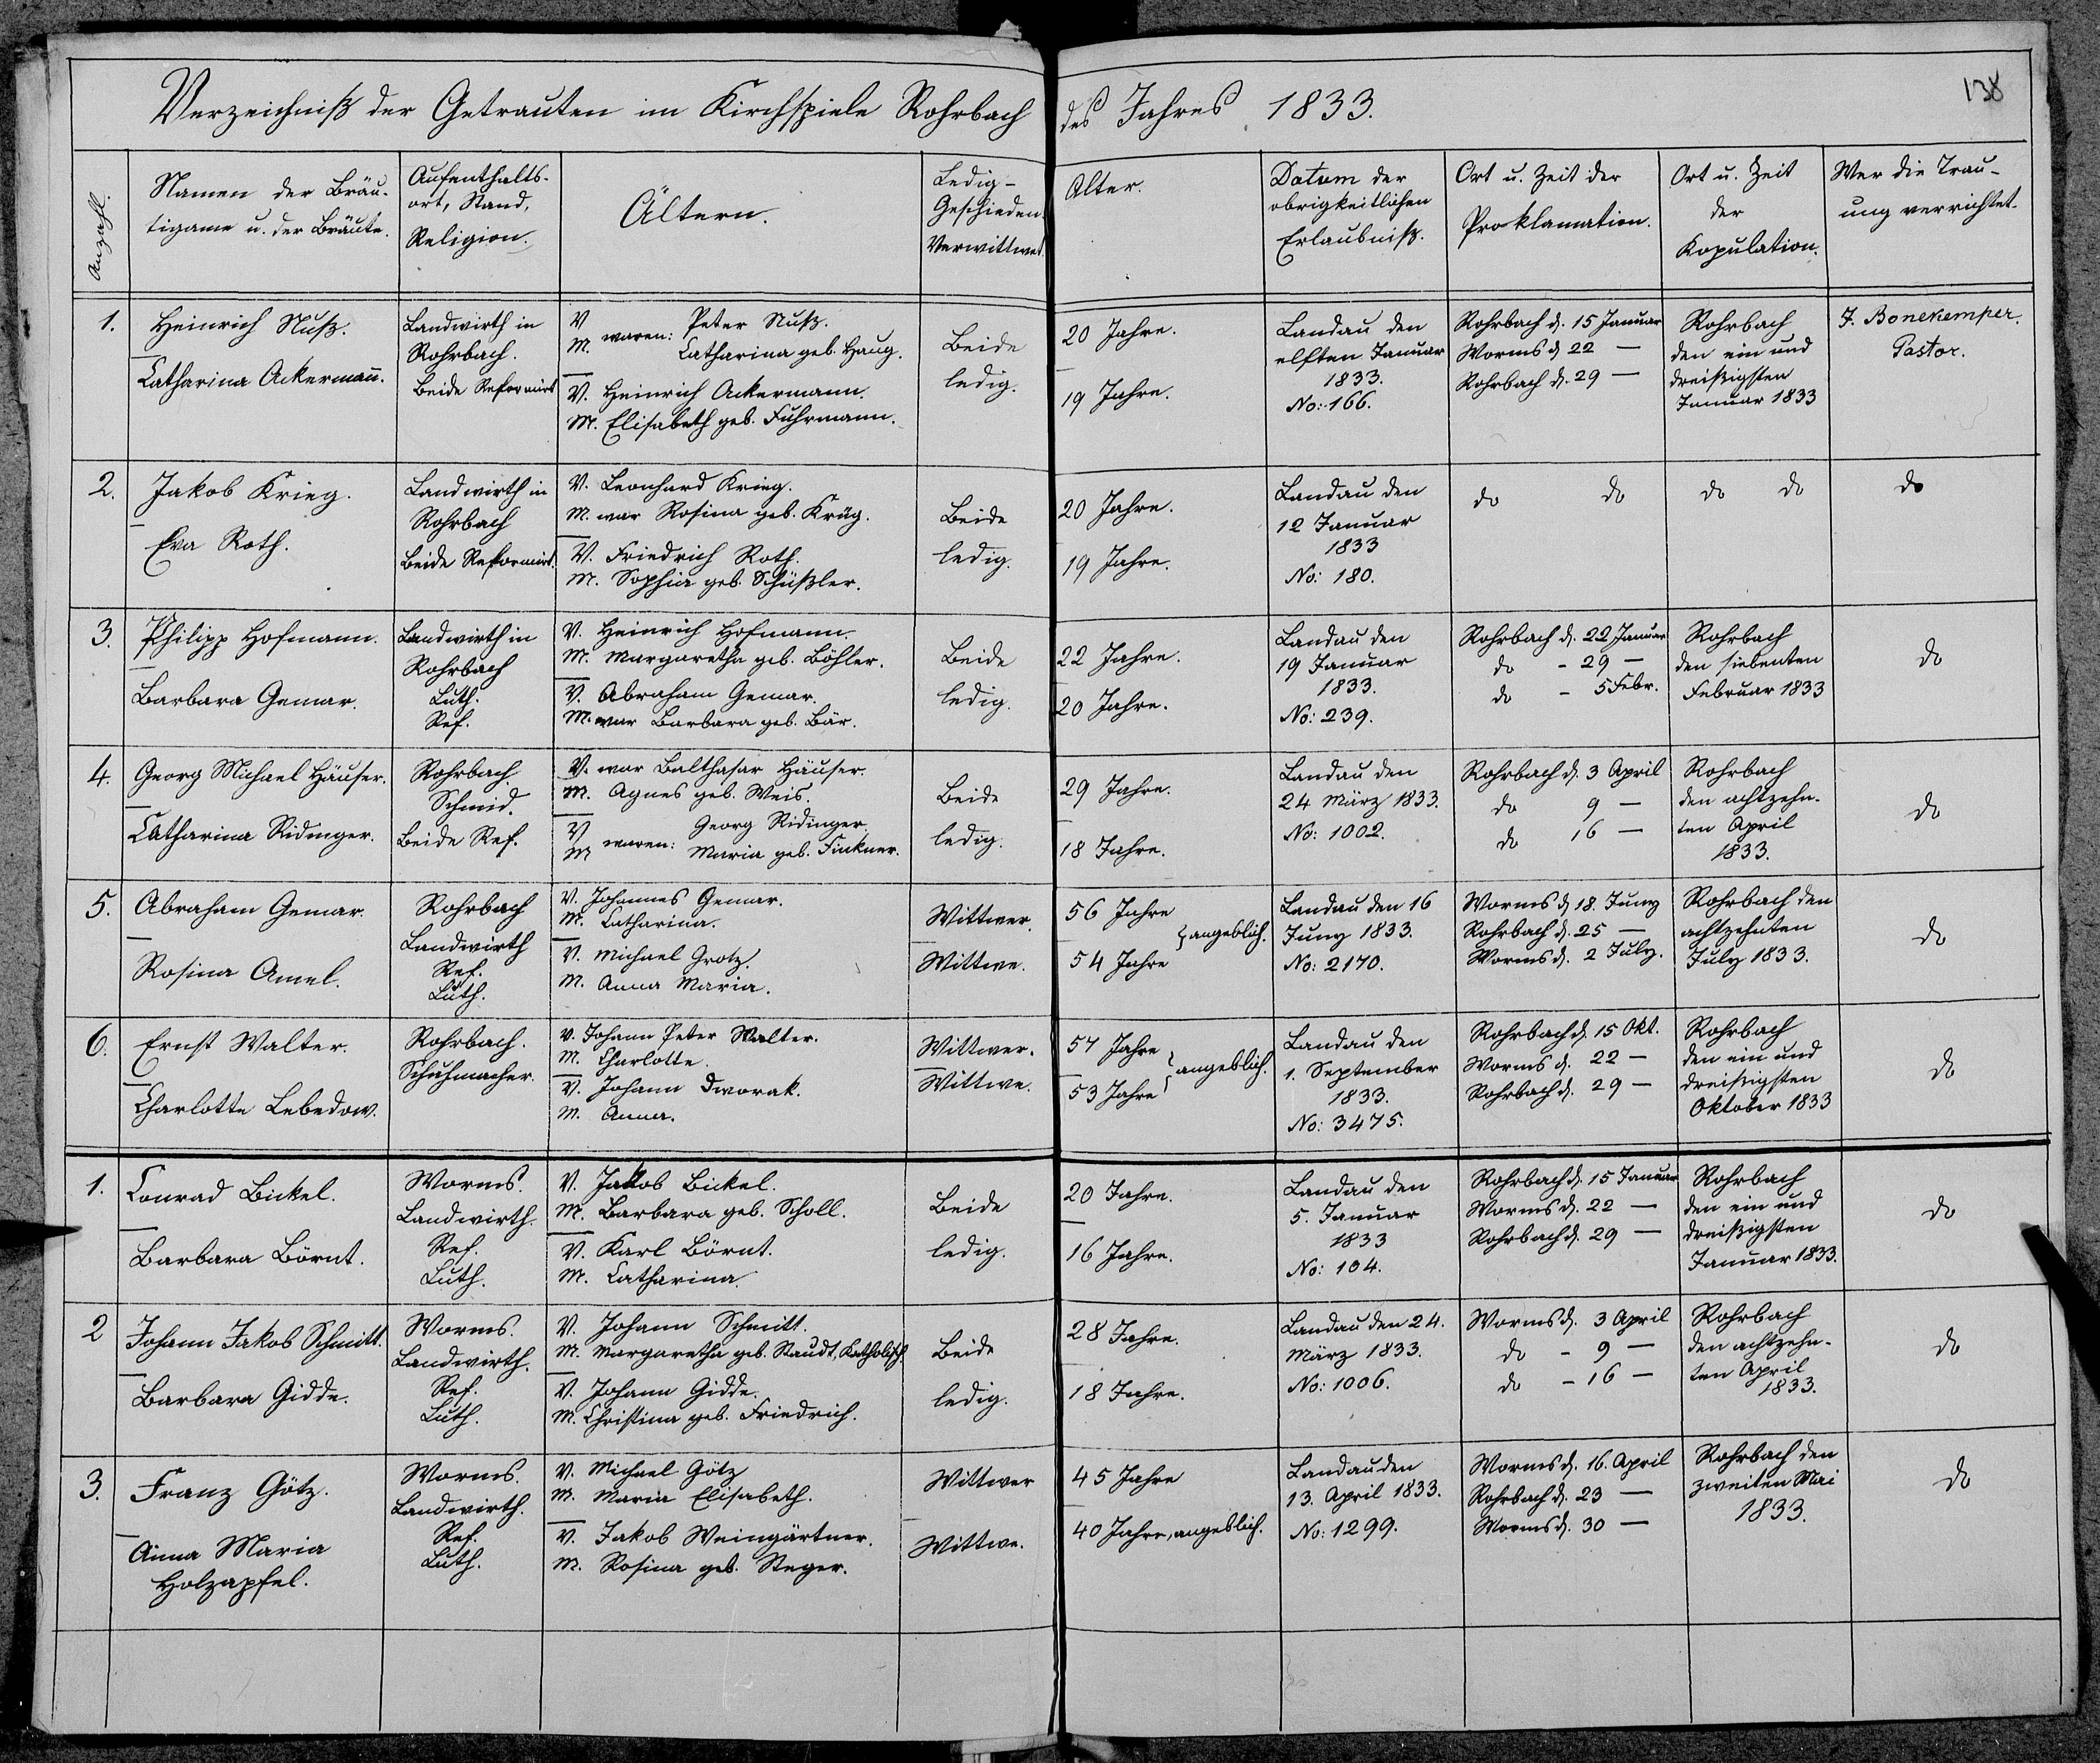 138
Verzeichniß der Getrauten im Kirchspiele Rohrbach des Jahres 1833.
Anzahl.
Namen der Bräu-
tigame u. der Bräute.
Aufenthalts-
ort, Stand,
Religion.
Ältern.
Ledig-
Geschieden
Verwittwet.
Alter.
Datum der
obrigkeitlichen
Erlaubniß.
Ort u. Zeit der
Proklamation.
Ort u. Zeit
der
Kopulation.
Wer die Trau-
ung verrichtet.
1.
Heinrich Nuß.
Catharina Ackermañ.
Landwirth in
Rohrbach.
Beide Reformirt
V
M. waren: Peter Nuß.
Catharina geb. Haug.
V. Heinrich Ackermann.
M. Elisabeth geb. Fuhrmann.
Beide
ledig.
20 Jahre.
19 Jahre.
Landau den
elften Januar
1833.
No: 166.
Rohrbach d. 15 Januar
Worms d. 22 —
Rohrbach d. 29 —
Rohrbach
den ein und
dreißigsten
Januar 1833
J. Bonekemper.
Pastor.
2.
Jakob Krieg.
Eva Roth.
Landwirth in
Rohrbach
Beide Reformirt.
V. Leonhard Krieg.
M. war Rosina geb. Krüg.
V. Friedrich Roth.
M. Sophia geb. Schüßler.
Beide
ledig.
20 Jahre.
19 Jahre.
Landau den
12 Januar
1833
No: 180.
do do
do do
do
3.
Philipp Hofmann.
Barbara Gemar.
Landwirth in
Rohrbach
Luth.
Ref.
V. Heinrich Hofmann.
M. Margaretha geb. Böhler.
V. Abraham Gemar.
M. war Barbara geb. Bär.
Beide
ledig.
22 Jahre.
20 Jahre.
Landau den
19 Januar
1833.
No: 239.
Rohrbach d. 22 Januar
do - 29 —
do - 5 Febr.
Rohrbach
den siebenten
Februar 1833
do
4.
Georg Michael Häuser.
Catharina Ridinger.
Rohrbach.
Schmid.
Beide Ref.
V. war Balthasar Häuser.
M. Agnes geb. Weis.
V
M waren: Georg Ridinger.
Maria geb. Finkner.
Beide
ledig.
29 Jahre.
18 Jahre.
Landau den
24 März 1833.
No: 1002.
Rohrbach d. 3 April
do 9 —
do 16 —
Rohrbach
den achtzehn-
ten April
1833.
do
5.
Abraham Gemar.
Rosina Amel.
Rohrbach
Landwirth
Ref.
Luth.
V. Johannes Gemar.
M. Catharina.
V. Michael Grotz.
M. Anna Maria.
Wittwer.
Wittwe.
56 Jahre
54 Jahre } angeblich.
Landau den 16
Juny 1833.
No: 2170.
Worms d. 18. Juny
Rohrbach d. 25 —
Worms d. 2 July.
Rohrbach den
achtzehnten
July 1833.
do
6.
Ernst Walter.
Charlotte Lebedow.
Rohrbach.
Schuhmacher.
V. Johann Peter Walter.
M. Charlotte.
V. Johann Dworak.
M. Anna.
Wittwer.
Wittwe.
57 Jahre
53 Jahre } angeblich.
Landau den
1. September
1833.
No: 3475.
Rohrbach d. 15 Okt.
Worms d. 22 —
Rohrbach d. 29 —
Rohrbach
den ein und
dreißigsten
Oktober 1833
do
1.
Conrad Bickel.
Barbara Börnt.
Worms.
Landwirth.
Ref.
Luth.
V. Jakob Bickel.
M. Barbara geb. Scholl.
V. Karl Börnt.
M. Catharina.
Beide
ledig.
20 Jahre.
16 Jahre.
Landau den
5. Januar
1833
No: 104.
Rohrbach d. 15 Januar
Worms d. 22 —
Rohrbach d. 29 —
Rohrbach
den ein und
dreißigsten
Januar 1833.
do
2
Johann Jakob Schmitt.
Barbara Gidde.
Worms.
Landwirth.
Ref.
Luth.
V. Johann Schmitt.
M. Margaretha geb. Staudt, Katholisch.
V. Johann Gidde.
M. Christina geb. Friedrich.
Beide
ledig.
28 Jahre.
18 Jahre.
Landau den 24.
März 1833.
No: 1006.
Worms d. 3 April
do - 9 —
do - 16 —
Rohrbach
den achtzehn-
ten April
1833.
do
3.
Franz Götz.
Anna Maria
Holzapfel.
Worms.
Landwirth.
Ref.
Luth.
V. Michael Götz
M. Maria Elisabeth.
V. Jakob Weingärtner.
M. Rosina geb. Steger.
Wittwer
Wittwe.
45 Jahre
40 Jahre, angeblich.
Landau den
13. April 1833.
No: 1299.
Worms d. 16. April
Rohrbach d. 23 —
Worms d. 30 —
Rohrbach den
zweiten Mai
1833.
do